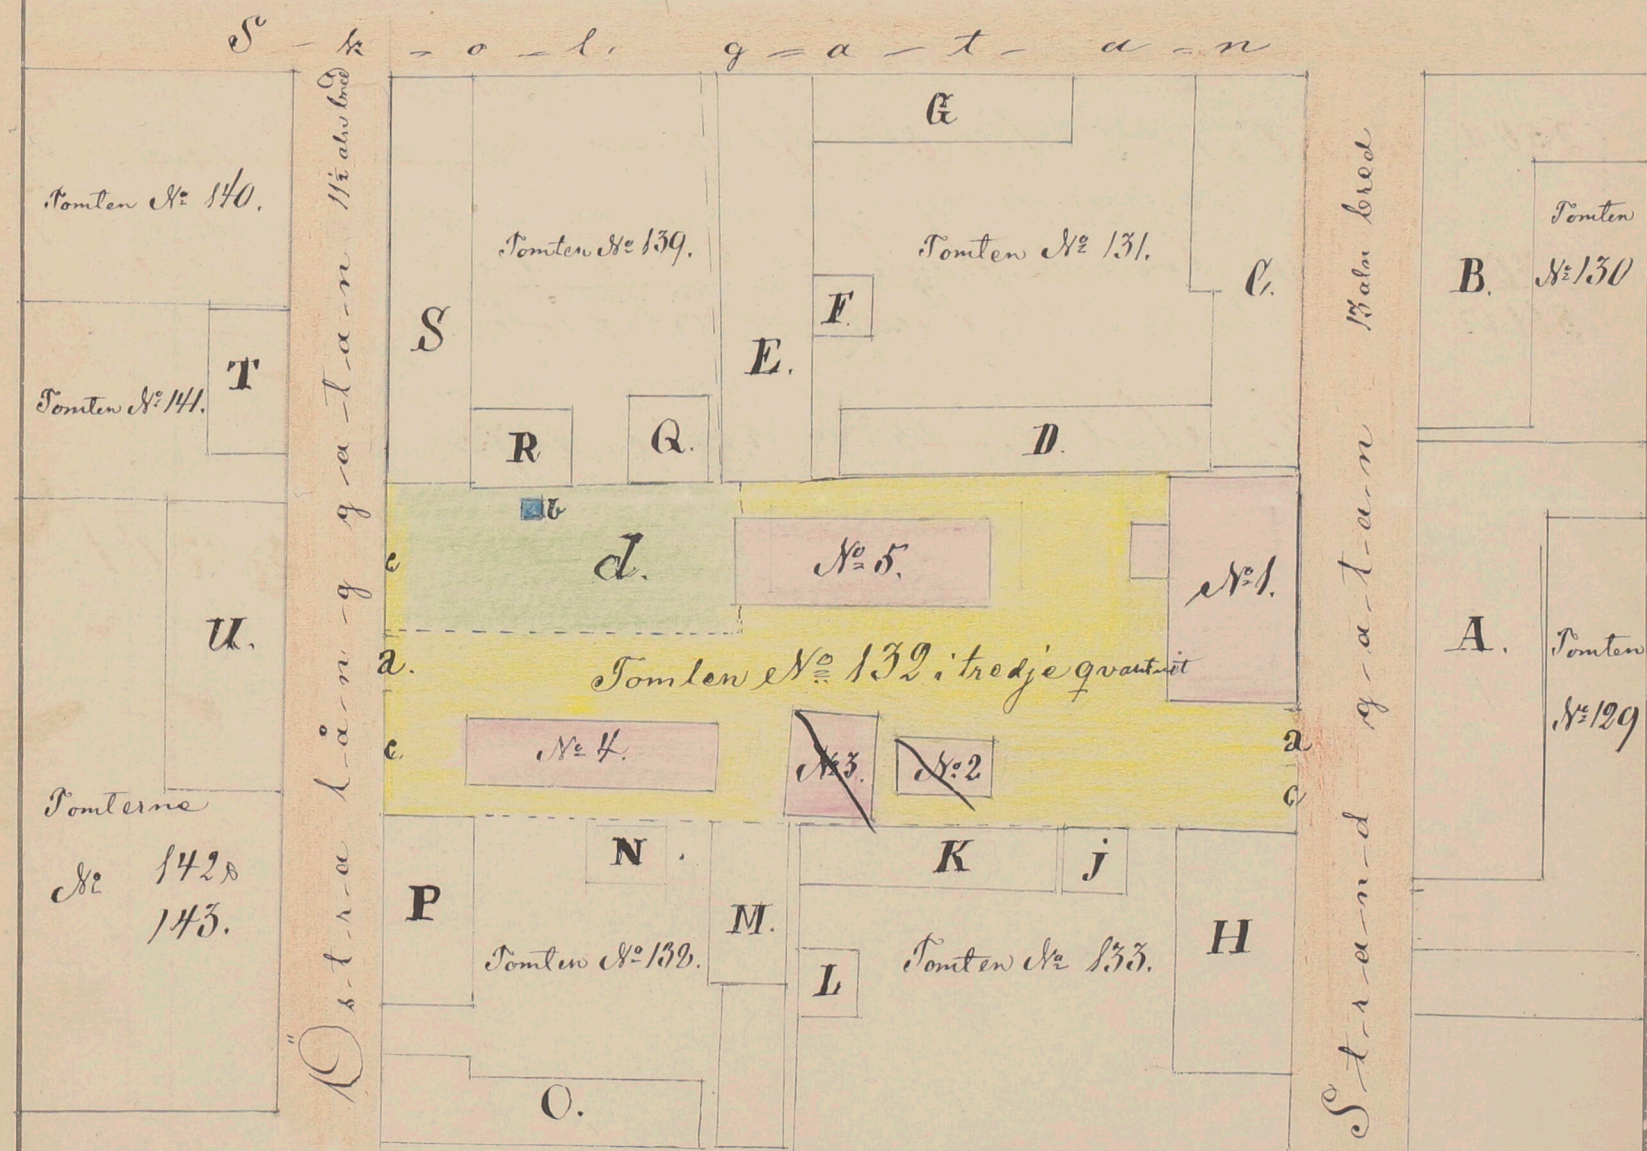 S-k-o-l-g-a-t-a-n
Östra långgatan 11½ aln bred
Strandgatan 13 aln bred
Tomten No 140.
Tomten No 141.
T
U.
Tomterne
No 142 &
143.
S
Tomten No 139.
R
Q.
E.
G
F.
Tomten No 131.
D.
C.
B.
Tomten
No 130
A.
Tomten
No 129
b
c
d.
No 5.
No 1.
a.
Tomten No 132 i tredje qvarteret
c.
No 4.
No 3.
No 2
a
c
P
N.
M.
K
j
H
Tomten No 138.
L
Tomten No 133.
O.